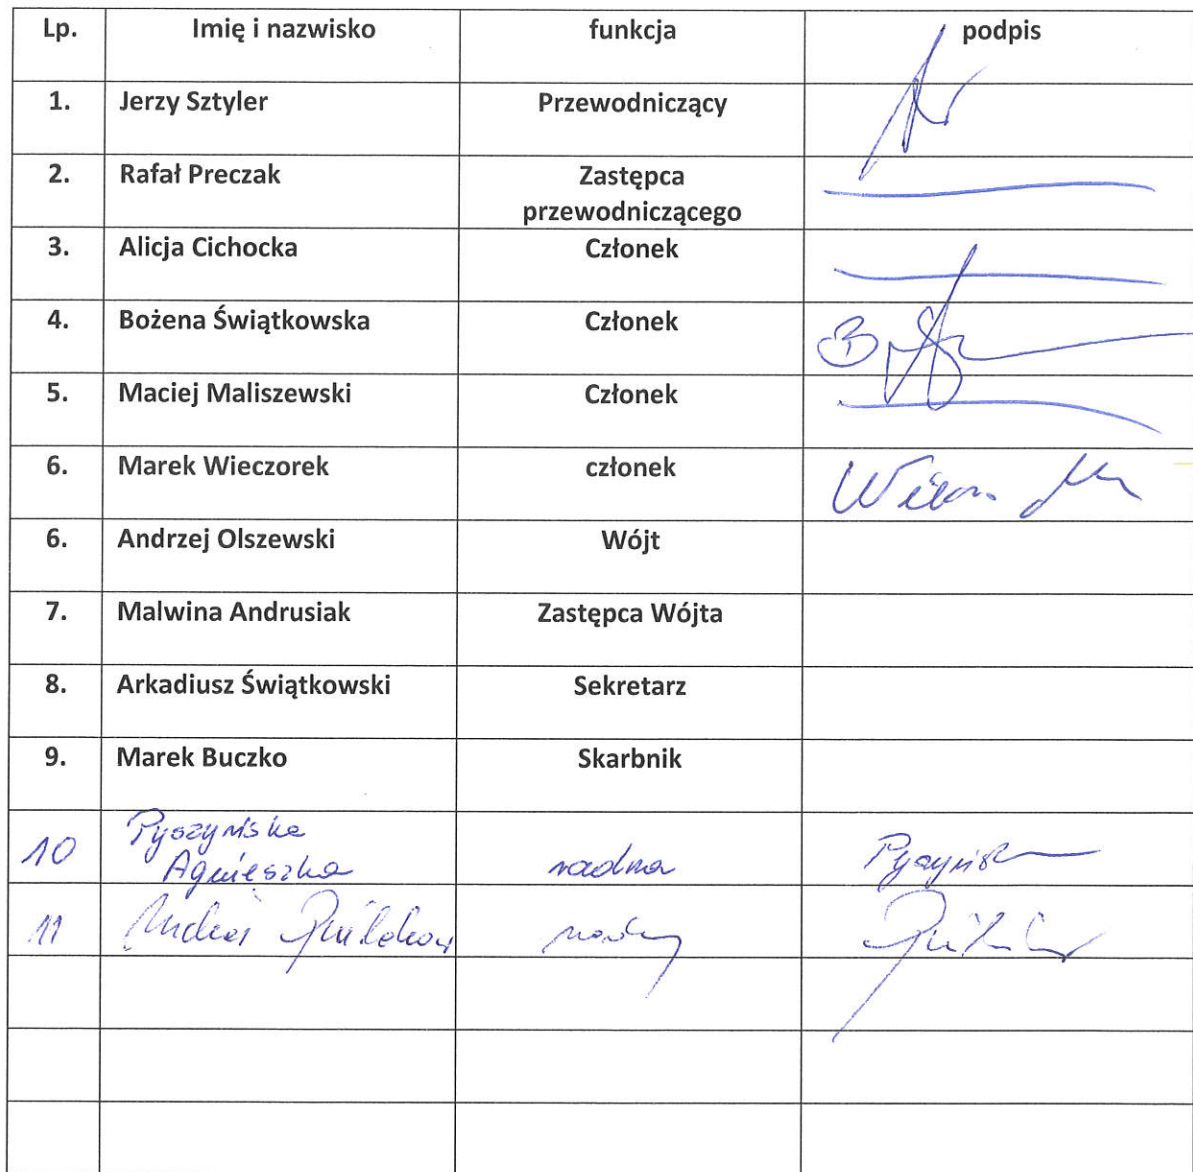 Lp. Imię i nazwisko funkcja podpis
1. Jerzy Sztyler Przewodniczący
2. Rafał Preczak Zastępca
przewodniczącego
3. Alicja Cichocka Członek
4. Bożena Świątkowska Członek
5. Maciej Maliszewski Członek
6. Marek Wieczorek członek
6. Andrzej Olszewski Wójt
7. Malwina Andrusiak Zastępca Wójta
8. Arkadiusz Świątkowski Sekretarz
9. Marek Buczko Skarbnik
Pyszyńska
10 Agnieszka radna
11 radny